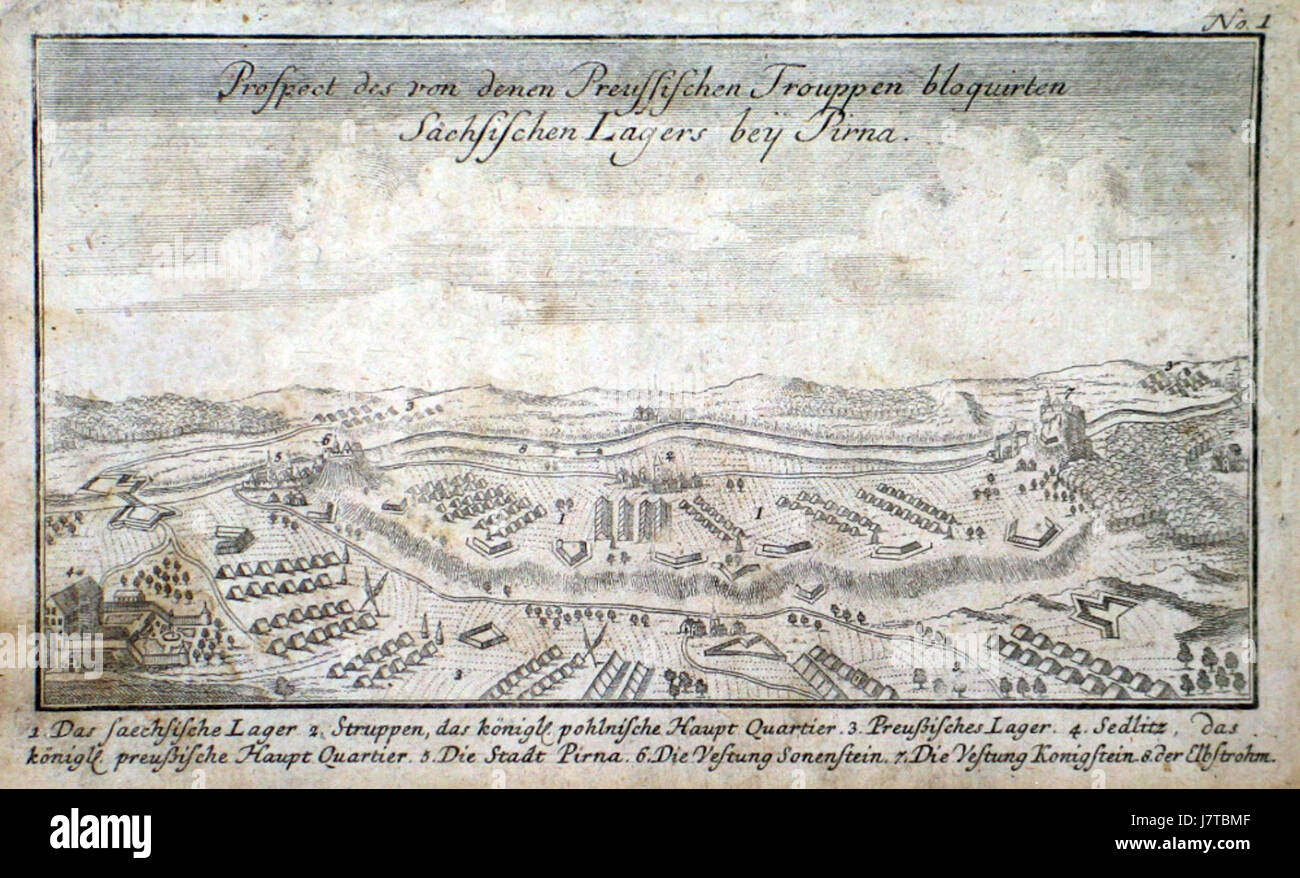 No. 1
Prospect des von denen Preussischen Trouppen bloquirten
Sächsischen Lagers beÿ Pirna.
alamy
alamy
3
3
7
6
8
5
2
1
1
4
3
3
alamy
1. Das saechsische Lager 2. Struppen, das königl. pohlnische Haupt Quartier. 3. Preußisches Lager. 4. Sedlitz, das
königl. preußische Haupt Quartier. 5. Die Stadt Pirna. 6. Die Vestung Sonenstein. 7. Die Vestung Konigstein. 8. der Elbstrohm.
alamy
Image ID: J7TBMF
www.alamy.com